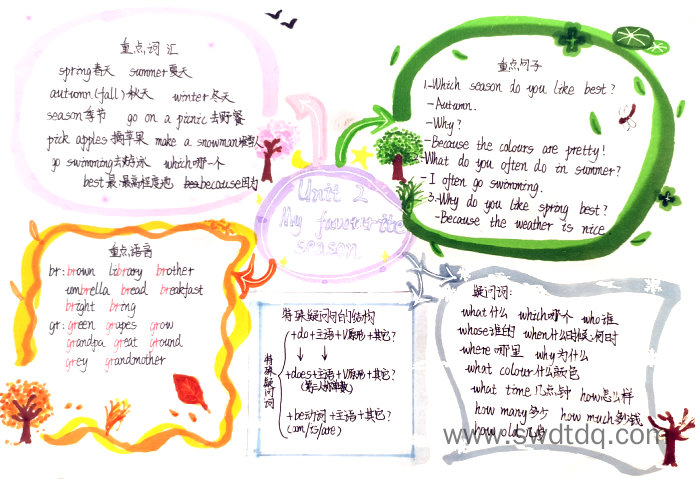 重点词汇
spring春天 summer夏天
autumn(fall)秋天 winter冬天
season季节 go on a picnic去野餐
pick apples摘苹果 make a snowman堆雪人
go swimming去游泳 which哪一个
best最,最高程度地 because因为
重点句子
1.-Which season do you like best?
-Autumn.
-Why?
-Because the colours are pretty!
2.-What do you often do in summer?
-I often go swimming.
3.-Why do you like spring best?
-Because the weather is nice
Unit 2
My favourite
season
重点语音
br: brown library brother
umbrella bread breakfast
bright bring
gr: green grapes grow
grandpa great ground
grey grandmother
特殊疑问句的结构
特殊疑问词
+do+主语+V原形+其它?
+does+主语+V原形+其它?
(第三人称单数)
+be动词+主语+其它?
(am/is/are)
疑问词:
what什么 which哪个 who谁
whose谁的 when什么时候,何时
where哪里 why为什么
what colour什么颜色
what time几点钟 how怎么样
how many多少 how much多少钱
how old几岁
www.swdtdq.com